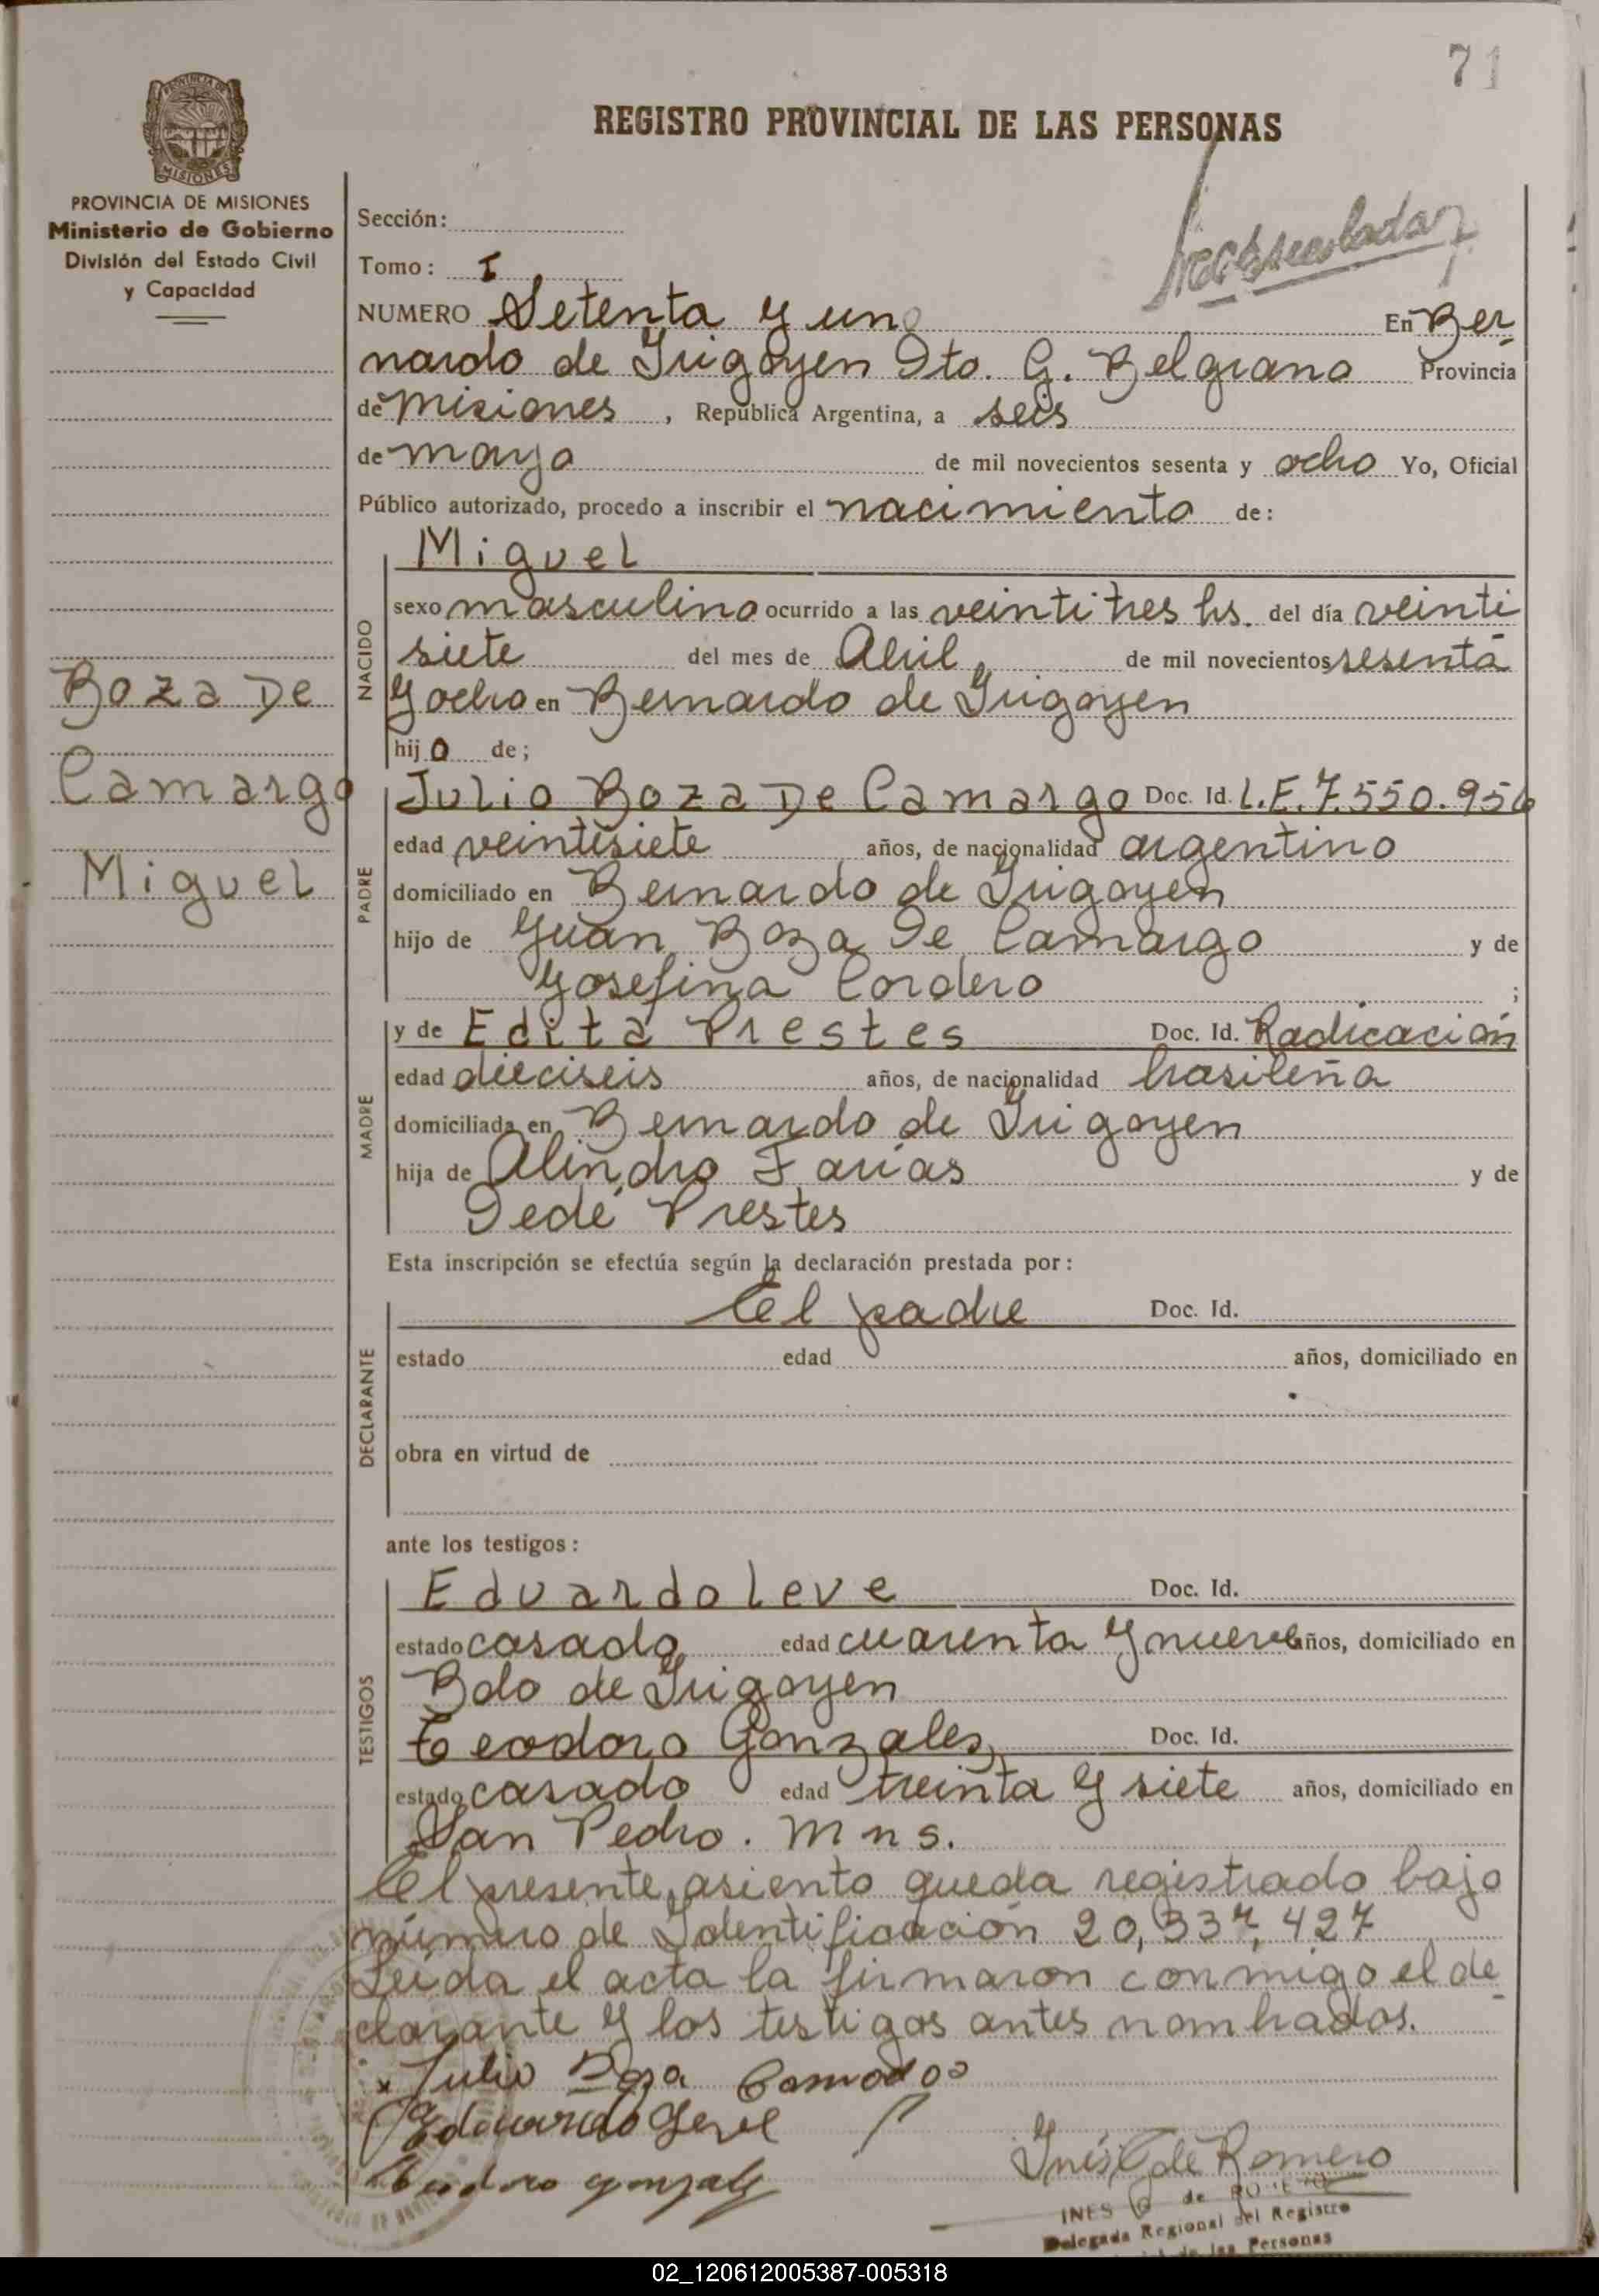 71
REGISTRO PROVINCIAL DE LAS PERSONAS
PROVINCIA DE MISIONES
MISIONES
PROVINCIA DE MISIONES
Ministerio de Gobierno
División del Estado Civil
y Capacidad
Boza De
Camargo
Miguel
Sección:
Tomo: I
NUMERO Setenta y uno En Ber
nardo de Irigoyen Dto. G. Belgrano Provincia
de misiones, República Argentina, a seis
de mayo de mil novecientos sesenta y ocho Yo, Oficial
Público autorizado, procedo a inscribir el nacimiento de:
NACIDO
Miguel
sexo masculino ocurrido a las veintitres hs. del día veinti
siete del mes de Abril, de mil novecientos sesenta
y ocho en Bernardo de Irigoyen
hijo de;
PADRE
Julio Boza De Camargo Doc. Id. L.E. 7.550.956
edad veintisiete años, de nacionalidad argentino
domiciliado en Bernardo de Irigoyen
hijo de Juan Boza De Camargo y de
Josefina Cordero ;
MADRE
y de Edita Prestes Doc. Id. Radicación
edad dieciseis años, de nacionalidad brasileña
domiciliada en Bernardo de Irigoyen
hija de Alindro Farias y de
Dedé Prestes
Esta inscripción se efectúa según la declaración prestada por:
DECLARANTE
El padre Doc. Id.
estado edad años, domiciliado en
obra en virtud de
ante los testigos:
TESTIGOS
Eduardo Leve Doc. Id.
estado casado edad cuarenta y nueve años, domiciliado en
Bdo de Irigoyen
Teodoro Gonzales, Doc. Id.
estado casado edad treinta y siete años, domiciliado en
San Pedro. Mns.
El presente asiento queda registrado bajo
número de Identificación 20,337,427
Leída el acta la firmaron conmigo el de
clarante y los testigos antes nombrados.
x Julio Boza
Eduardo
Inés C de Romero
INES C de ROMERO
Delegada Regional del Registro
de las Personas
02_120612005387-005318